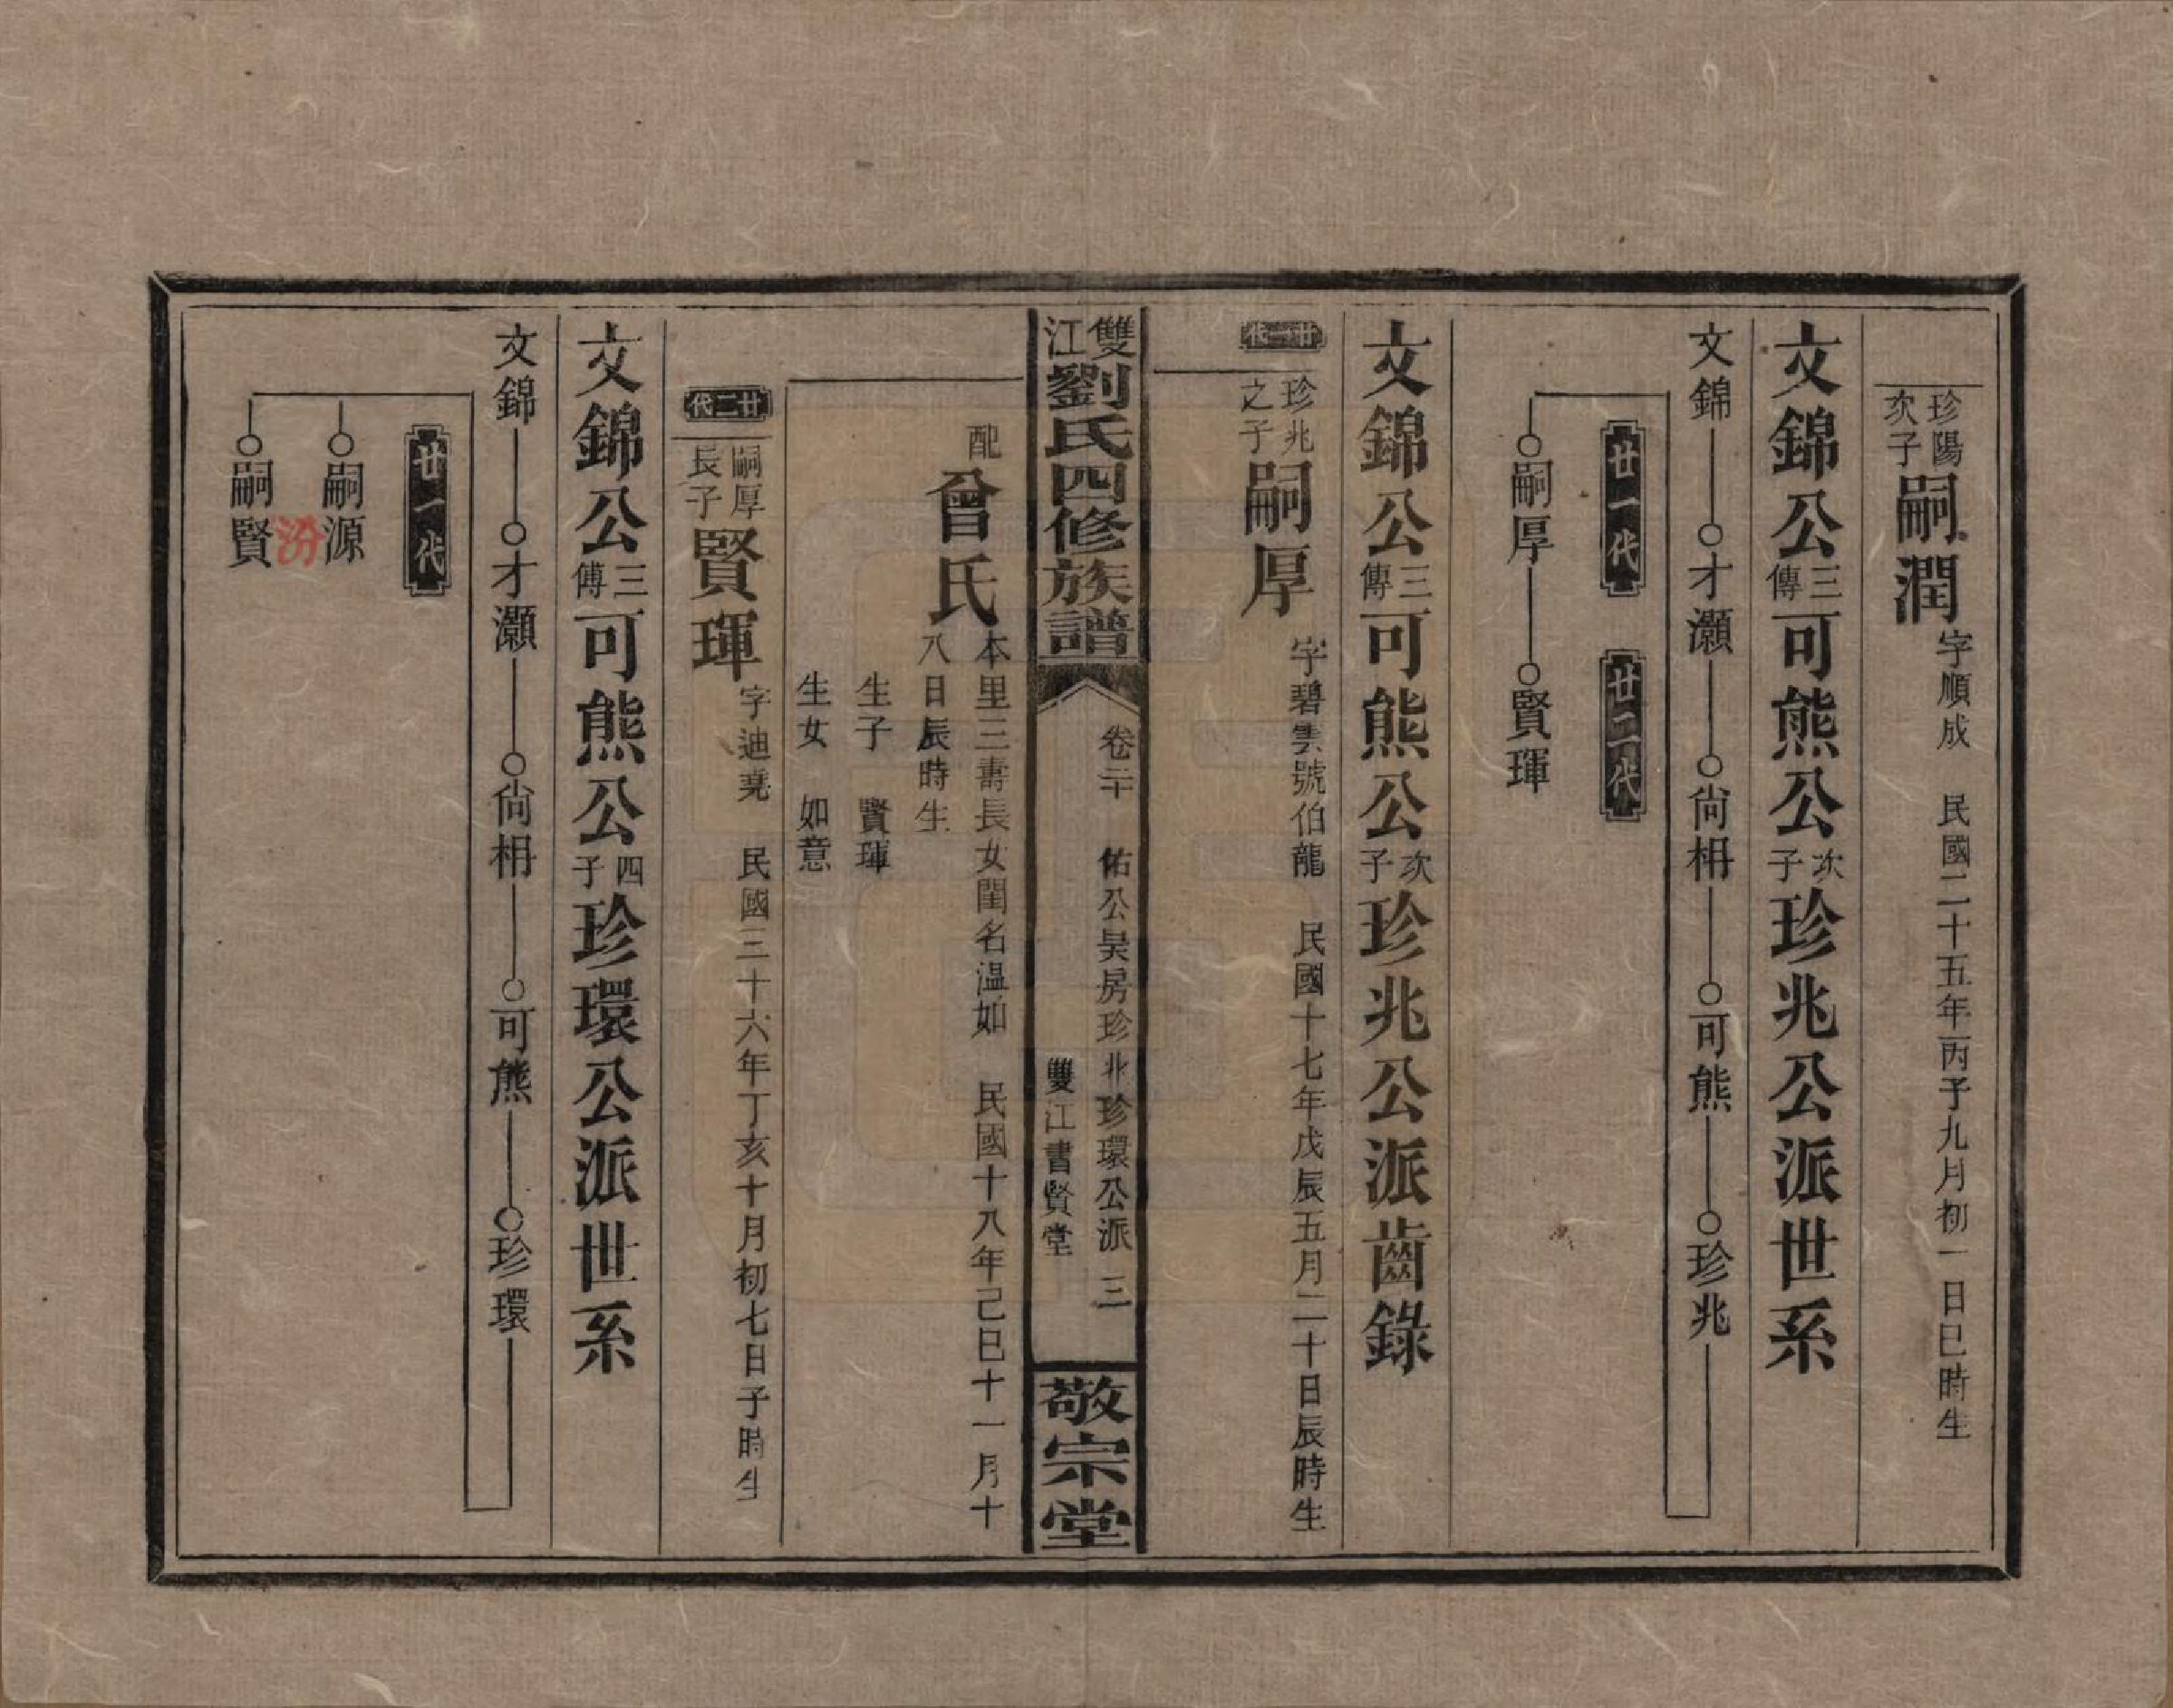 珍陽次子嗣潤字順成　民國二十五年丙子九月初一日巳時生
文錦公三傳可熊公次子珍兆公派世系
文錦　才灝　尙枏　可熊　珍兆
廿一代　廿二代
嗣厚　賢琿
文錦公三傳可熊公次子珍兆公派齒錄
廿一代
珍兆之子嗣厚字碧雲號伯龍　民國十七年戊辰五月二十日辰時生
雙江劉氏四修族譜
卷二十　佑公昊房珍兆珍環公派　三
雙江書賢堂
敬宗堂
配曾氏本里三壽長女閨名溫如　民國十八年己巳十一月十
八日辰時生
生子　賢琿
生女　如意
廿二代
嗣厚長子賢琿字迪堯　民國三十六年丁亥十月初七日子時生
文錦公三傳可熊公四子珍環公派世系
文錦　才灝　尙枏　可熊　珍環
廿一代
嗣源
嗣賢